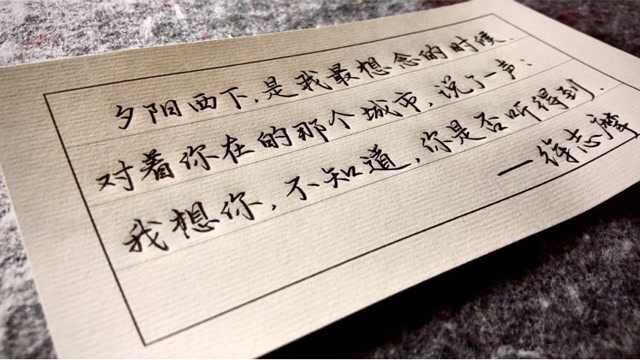 夕阳西下,是我最想念的时候
对着你在的那个城市,说了一声:
我想你,不知道,你是否听得到.
——徐志摩